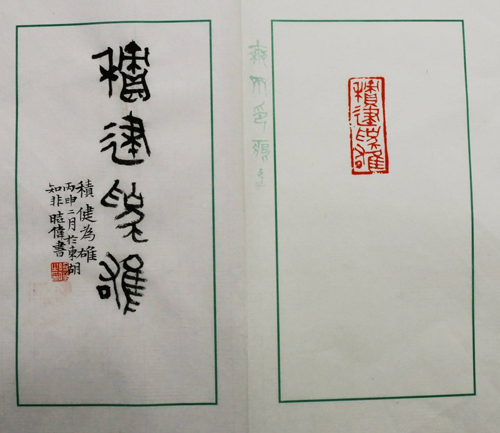 積建為雄
積建為雄
積健為雄
丙申二月於東湖
知非偉書